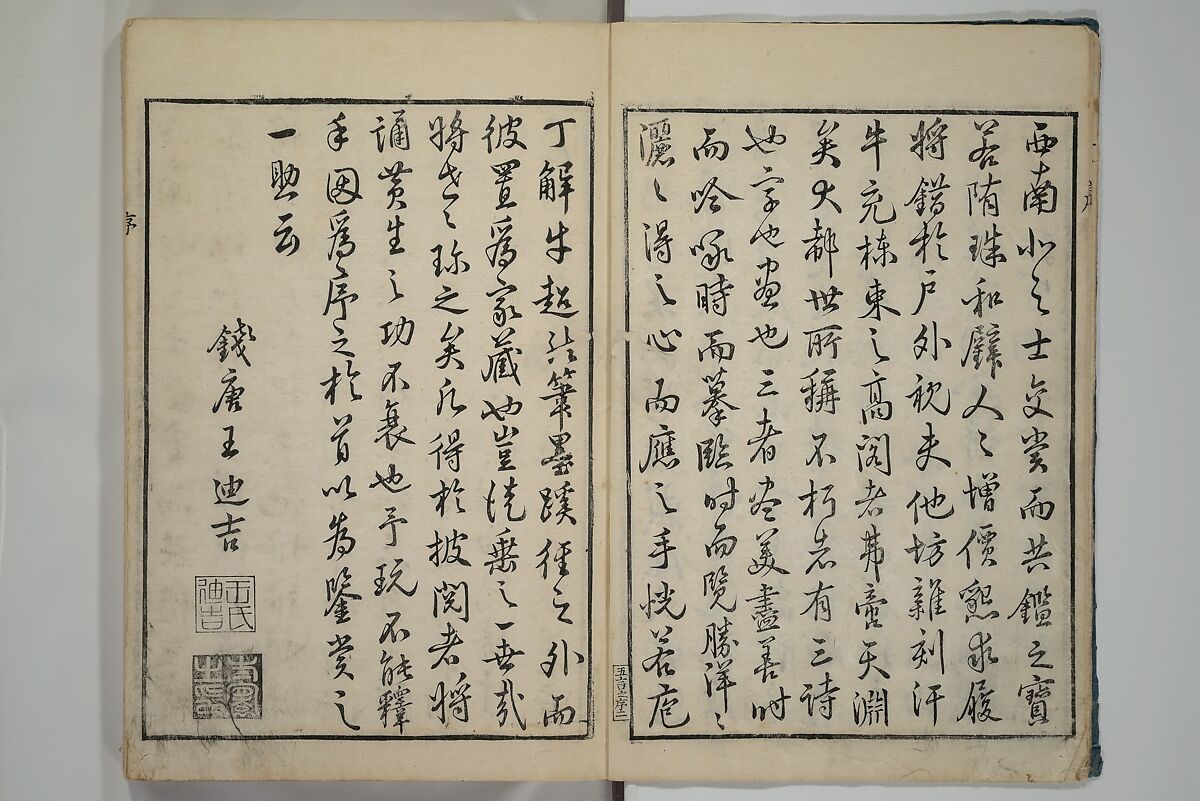 西南北之士交賞而共鑑之寶
若隋珠和璧人々增價懇求履
將錯於戶外視夫他坊雜刻汗
牛充棟束之高閣者苐啻天淵
矣大都世所稱不朽者有三詩
也字也畫也三者盡美盡善時
而吟咏時而摹臨時而覽勝洋々
灑々得之心而應之手恍若庖
五言之序二
丁解牛超於筆墨蹊徑之外而
彼置爲家藏也豈徒樂之一世哉
將世々珍之矣乃得於披閱者將
誦黃生之功不衰也予玩不能釋
手因爲序之於首以為鑒賞之
一助云
錢唐王迪吉
王氏迪吉
序